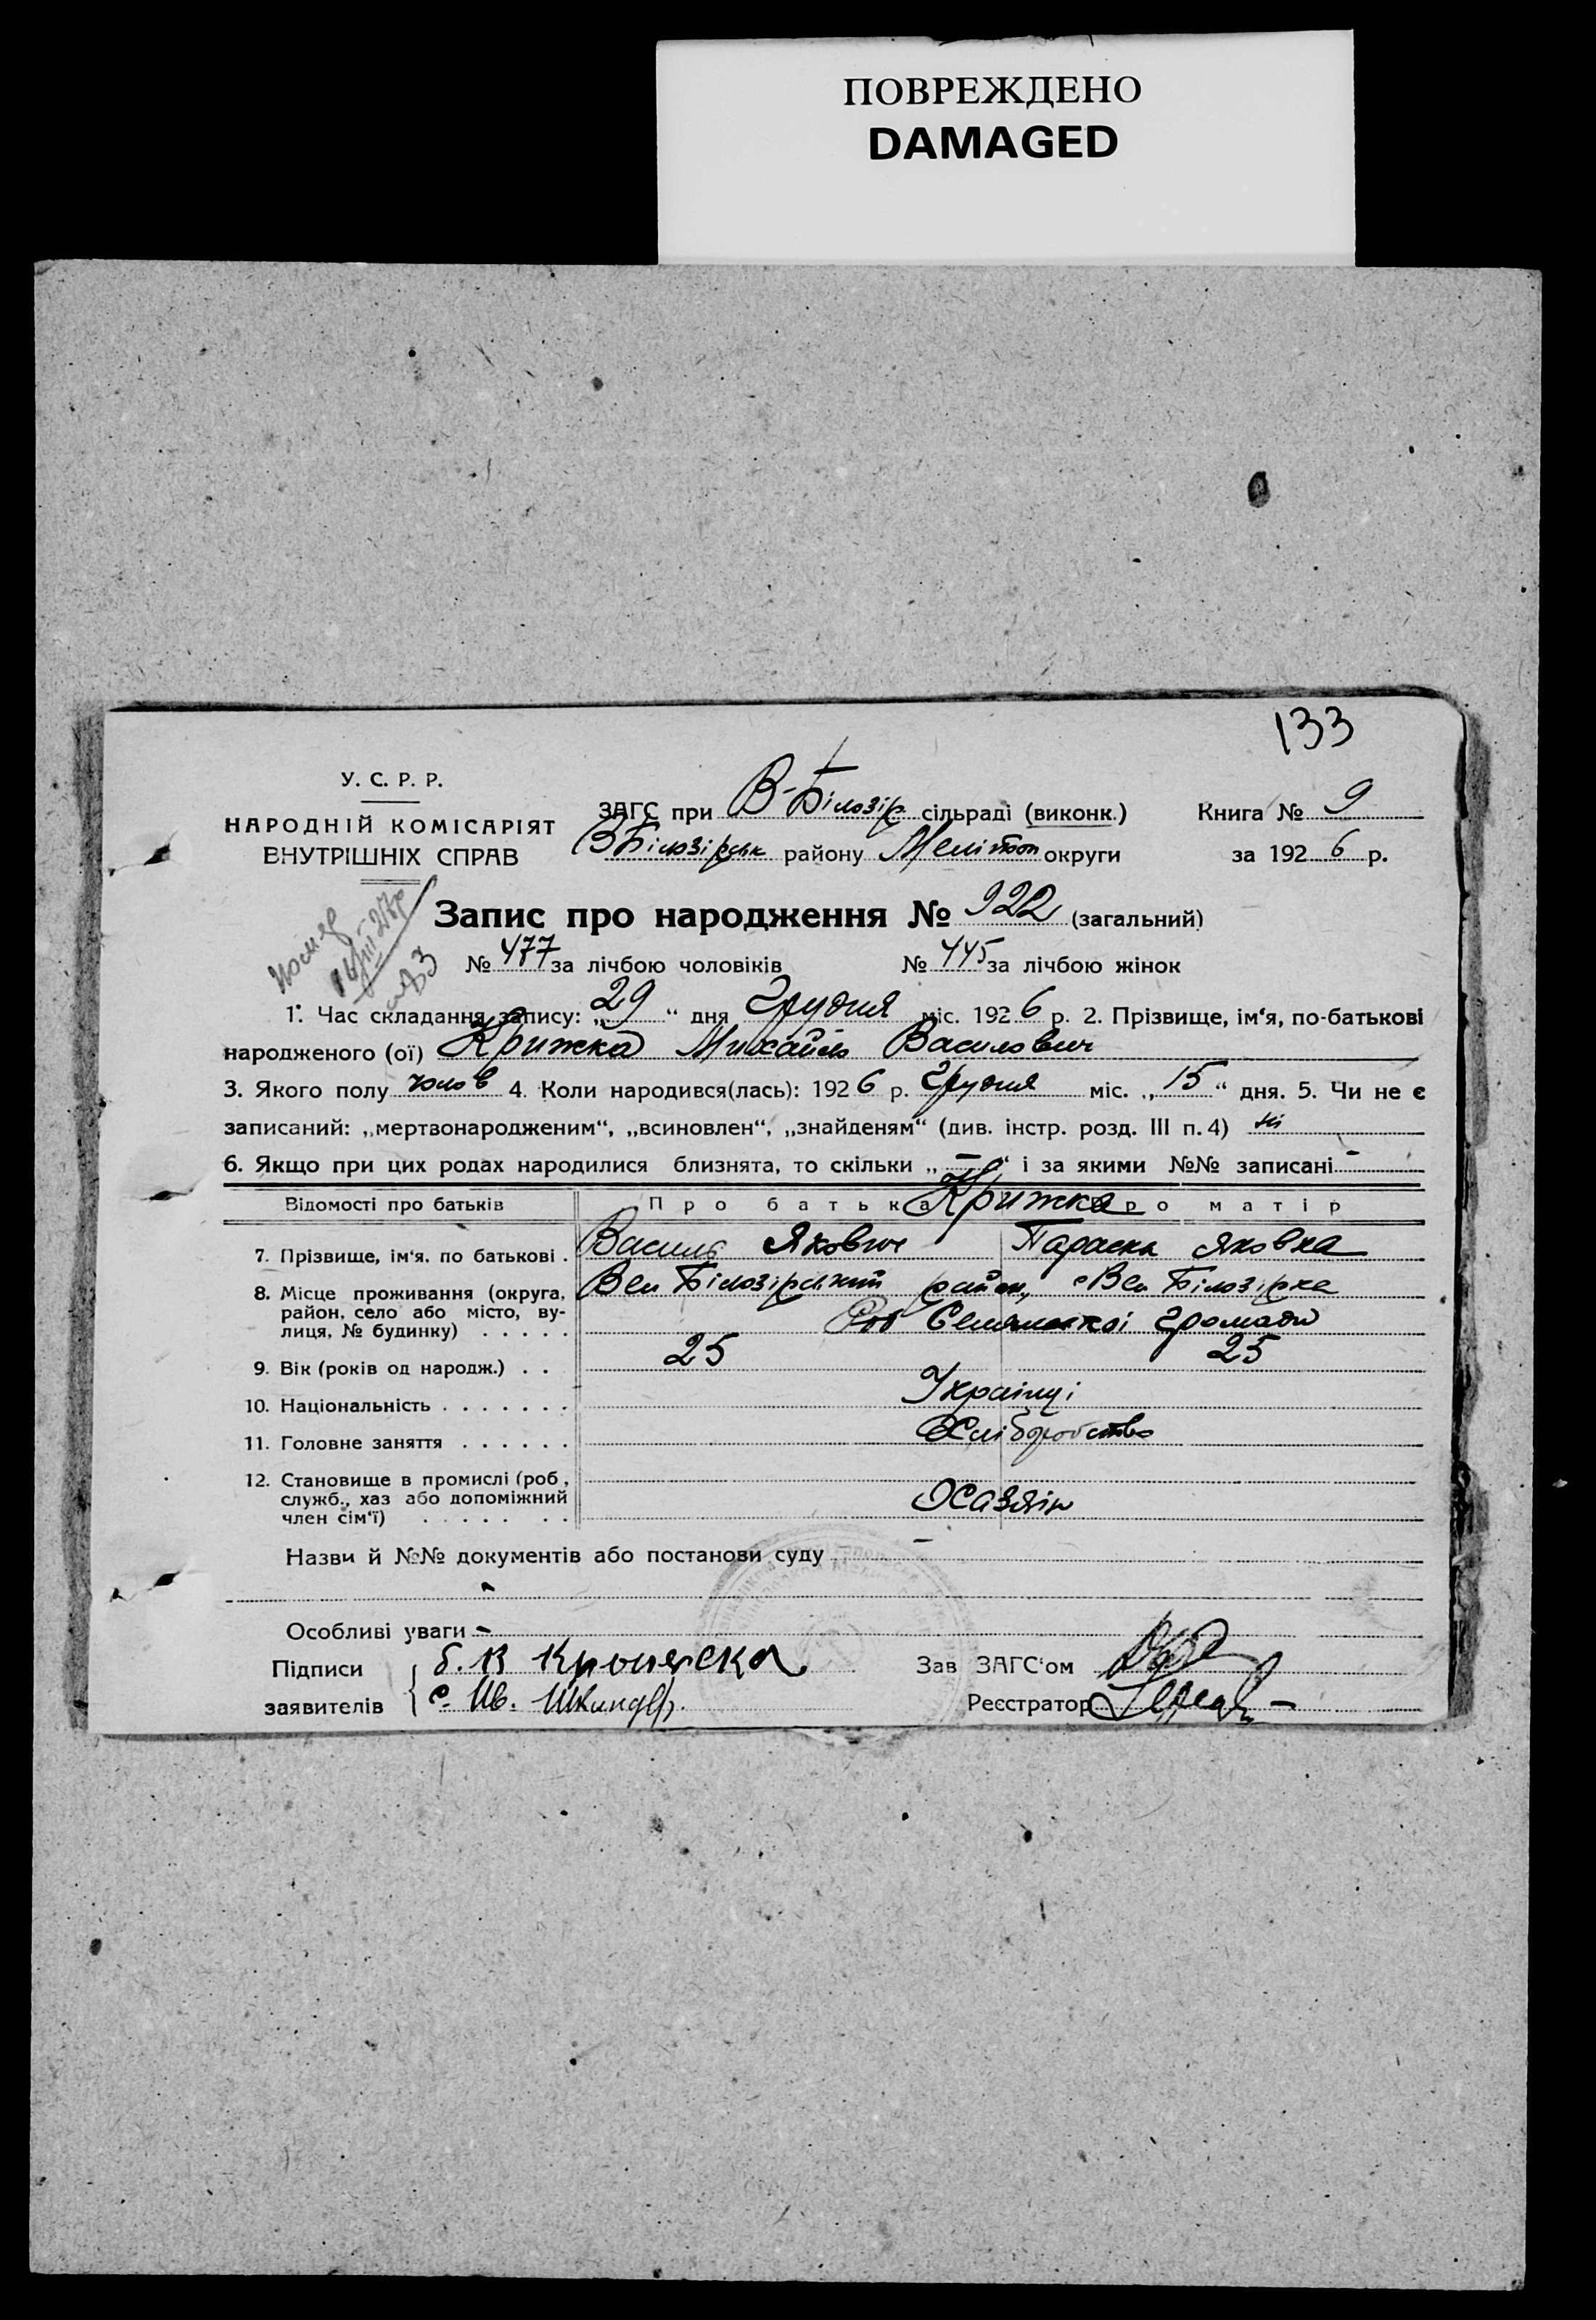 ПОВРЕЖДЕНО
DAMAGED
133
У. С. Р. Р.
НАРОДНІЙ КОМІСАРІЯТ
ВНУТРІШНІХ СПРАВ
ЗАГС при В-Білозір сільраді (виконк.) Книга № 9
ВБілозірськ району Меліtоп округи за 1926 р.
Запис про народження № 922 (загальний)
№ 477 за лічбою чоловіків № 445 за лічбою жінок
1. Час складання запису: „29“ дня Грудня міс. 1926 р. 2. Прізвище, ім‘я, по-батькові
народженого (ої) Крижка Михайло Василович
3. Якого полу чолов 4. Коли народився(лась): 1926 р. Грудня міс. „15“ дня. 5. Чи не є
записаний: „мертвонародженим“, „всиновлен“, „знайденям“ (див. інстр. розд. III п. 4) ні
6. Якщо при цих родах народилися близнята, то скільки „—“ і за якими №№ записані —
Відомості про батьків Про батька Крижка Про матір
7. Прізвище, ім‘я, по батькові . Василь Якович Параска Яковна
8. Місце проживання (округа, Вел Білозірський район, с Вел Білозірка
район, село або місто, ву-
лиця, № будинку) . . . . . громади
9. Вік (років од народж.) . . 25 25
10. Національність . . . . . . . Українці
11. Головне заняття . . . . . . Хліборобство
12. Становище в промислі (роб.,
служб., хаз або допоміжний Хазяїн
член сім‘ї) . . . . . . .
Назви й №№ документів або постанови суду —
Особливі уваги —
Підписи Зав ЗАГС‘ом
заявителів Реєстратор